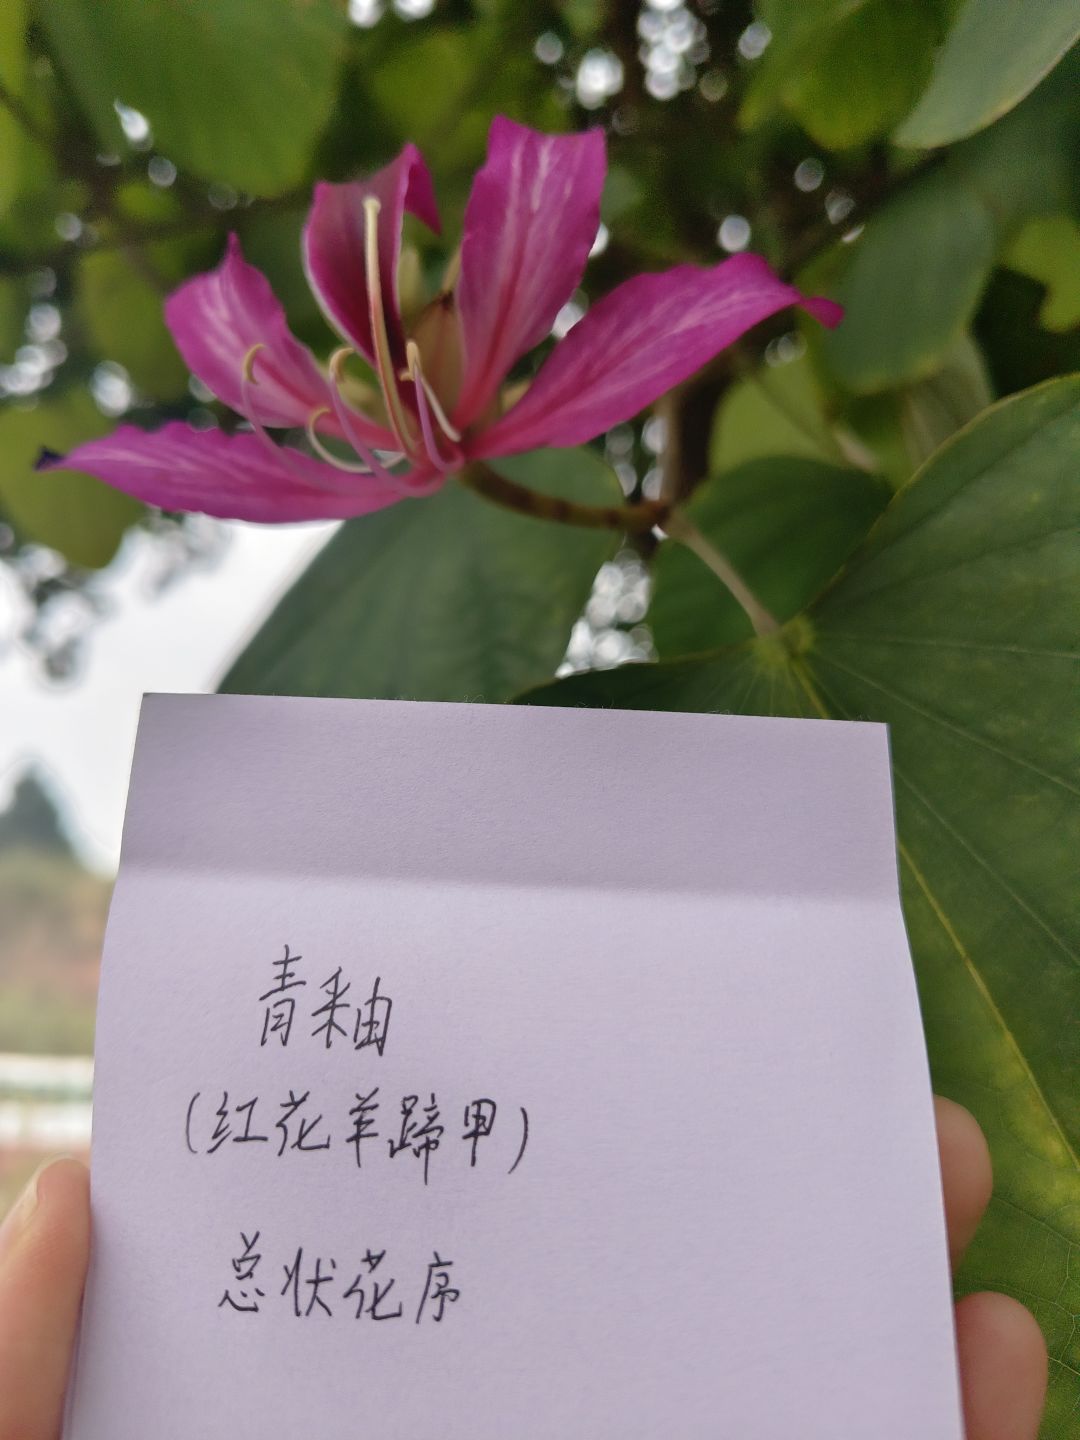 青釉
(红花羊蹄甲)
总状花序